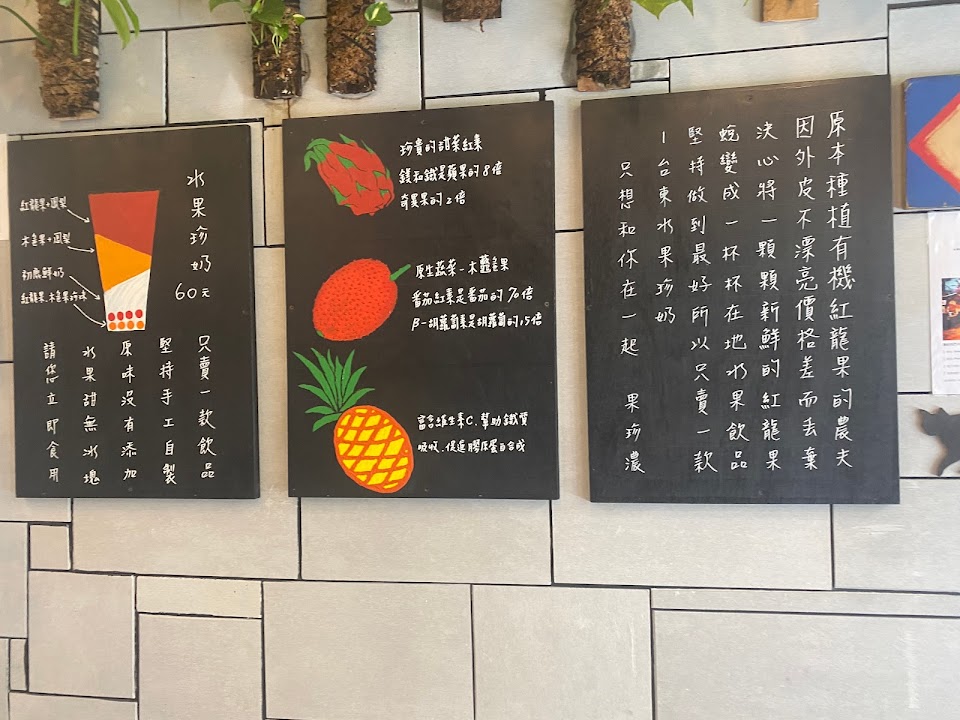 水果珍奶
60元
紅龍果+鳳梨
木鱉果+鳳梨
初鹿鮮奶
只賣一款飲品
堅持手工自製
原味沒有添加
水果甜無冰塊
請您立即食用
珍貴的甜菜紅素
鎂和鐵是蘋果的8倍
奇異果的2倍
原生蔬菜-木虌果
番茄紅素是番茄的70倍
β-胡蘿蔔素是胡蘿蔔的15倍
富含維生素C.幫助鐵質
吸收.促進膠原蛋白合成
原本種植有機紅龍果的農夫
因外皮不漂亮價格差而丟棄
決心將一顆顆新鮮的紅龍果
蛻變成一杯杯在地水果飲品
堅持做到最好所以只賣一款
-台東水果珍奶
只想和你在一起 果珍濃